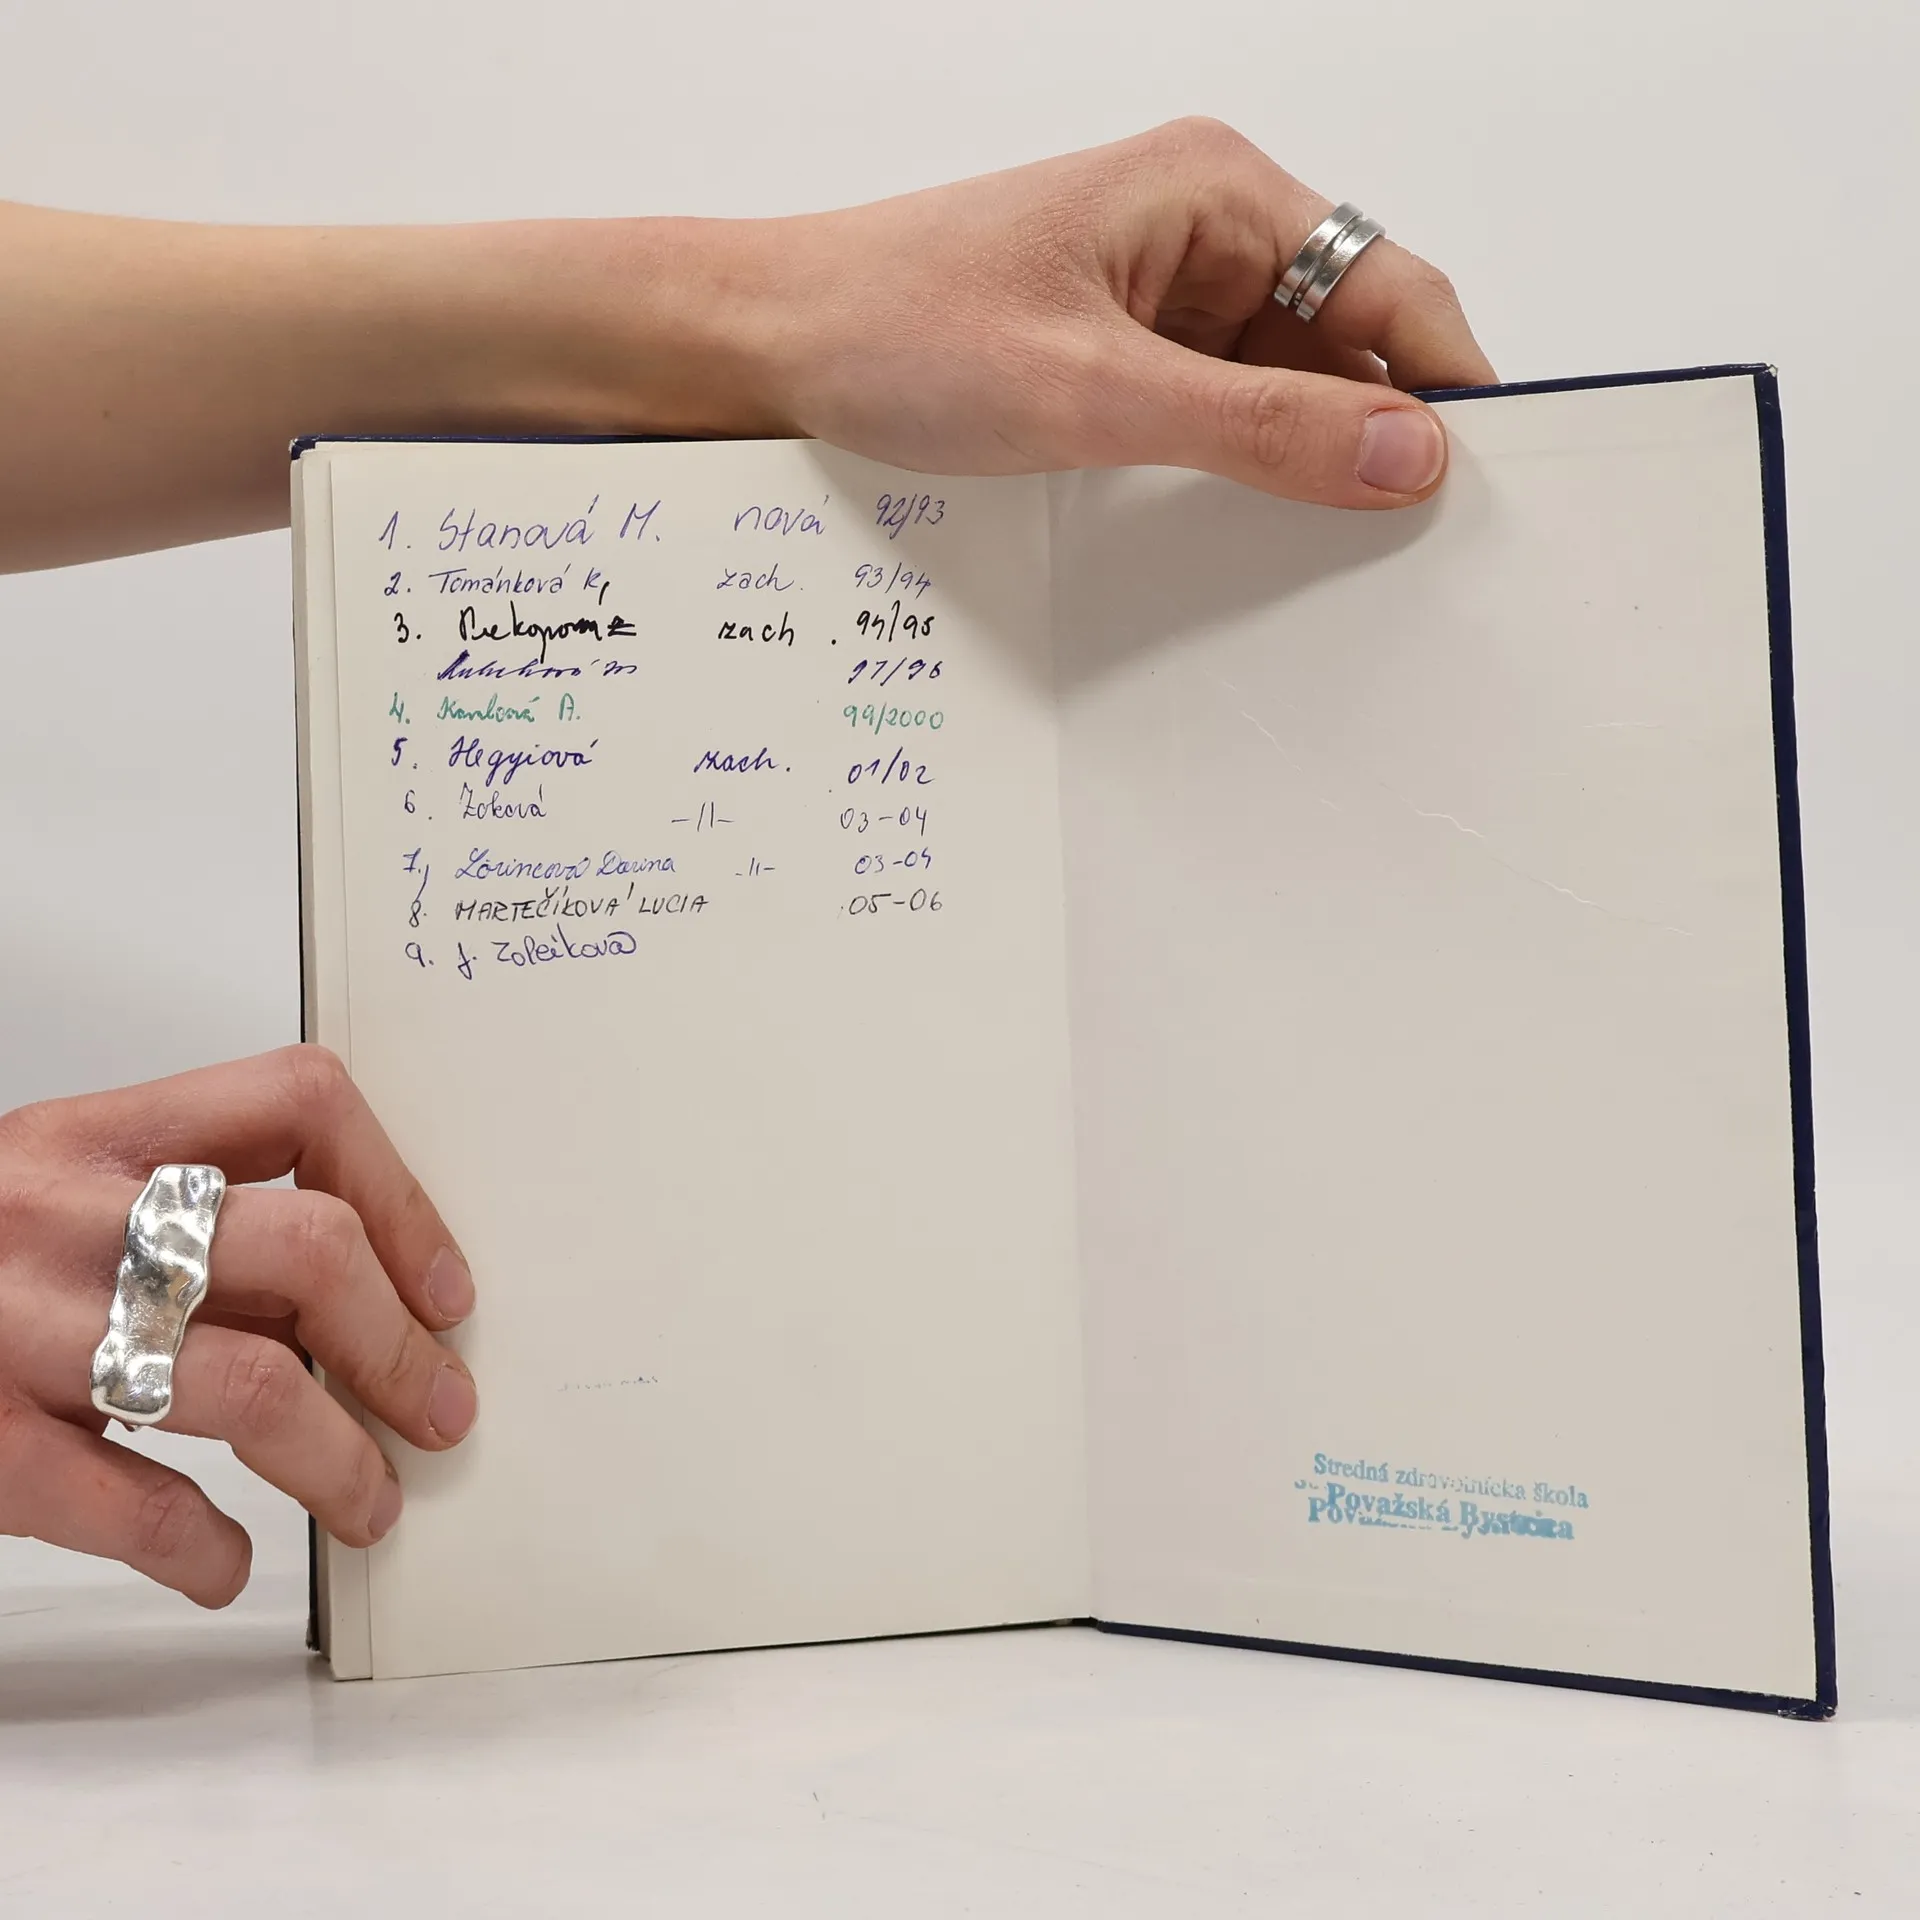 1. Stanová M. nová 92/93
2. Tománková K, zach. 93/94
3. zach. 94/95
97/98
4. A. 99/2000
5. Hegyiová zach. 01/02
6. Zoková -//- 03-04
7., Lörincová Darina -//- 03-04
8. MARTEČÍKOVÁ LUCIA 05-06
9. J.
Stredná zdravotnícka škola
Považská Bystrica